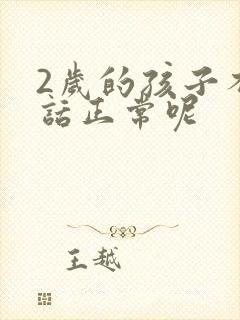 2歲的孩子
話正常呢
王越